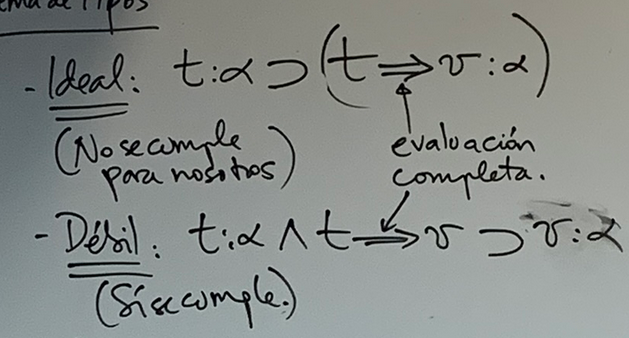 ema de Tipos
- Ideal: t:α ⊃ (t ⇒ v:α)
(No se cumple
para nosotros)
evaluación
completa.
- Débil: t:α ∧ t ⇒ v ⊃ v:α
(Sí se cumple.)